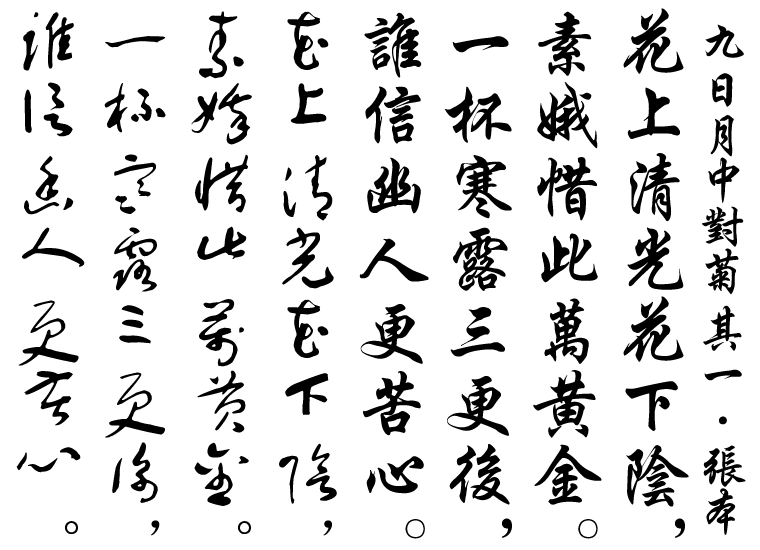 九日月中對菊其一·張本
花上清光花下陰，
素娥惜此萬黃金。
一杯寒露三更後，
誰信幽人更苦心。
花上清光花下陰，
素娥惜此萬黃金。
一杯寒露三更後，
誰信幽人更苦心。